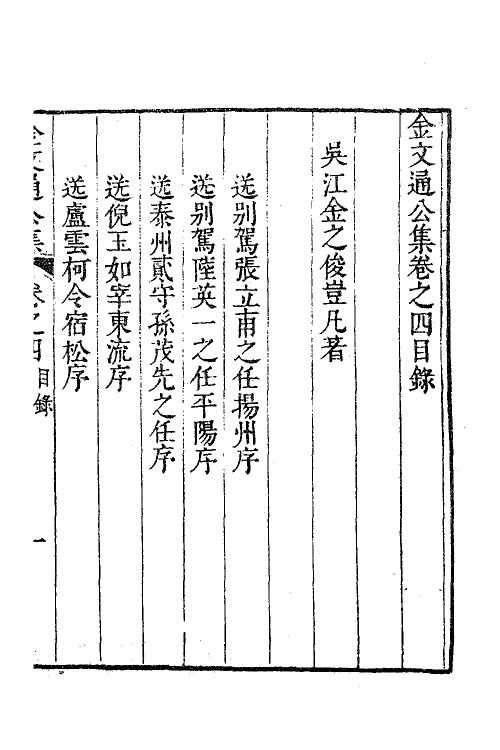 金文通公集卷之四目錄
吳江金之俊豈凡著
送別駕張立甫之任揚州序
送別駕陸英一之任平陽序
送泰州貳守孫茂先之任序
送倪玉如宰東流序
送盧雲柯令宿松序
金文通公集 卷之四 目錄 一